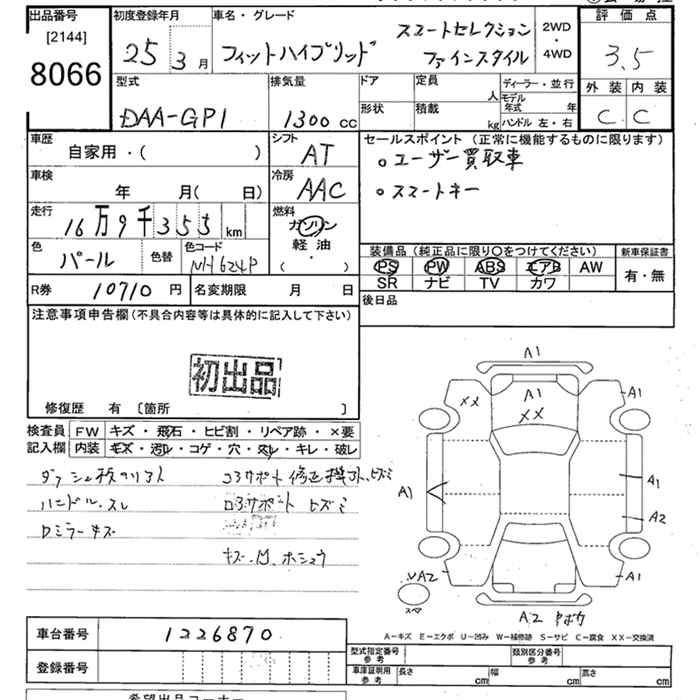 出品番号 初度登録年月 車名・グレード 評価点
[2144] スマートセレクション 2WD
8066 25年 3月 フィットハイブリッド ファインスタイル 4WD 3.5
型式 排気量 ドア 定員 人 ディーラー・並行 外装 内装
DAA-GP1 1300cc 形状 積載 kg モデル年式 年 ハンドル 左・右 C C
車歴 シフト セールスポイント (正常に機能するものに限ります)
自家用・( ) AT ○ユーザー買取車
車検 冷房 ○スマートキー
年 月( 日) AAC
走行 燃料
16万9千355km ガソリン
軽油
( ・ )
色 パール 色替 色コード NH624P
装備品 (純正品に限り○をつけてください) 新車保証書
PS PW ABS エアB AW 有・無
SR ナビ TV カワ
R券 10710円 名変期限 月 日 後日品
注意事項申告欄(不具合内容等は具体的に記入して下さい)
初出品
修復歴 有 [箇所 ]
検査員 FW キズ・飛石・ヒビ割・リペア跡・×要
記入欄 内装 キズ・汚れ・コゲ・穴・スレ・キレ・破レ
ハンドル.スレ
ロ3サポート ヒズミ
A1
A1
XX
XX
A1
A1
A1
A2
A2
A1
スペア
A2
A-キズ E-エクボ U-凹み W-補修跡 S-サビ C-腐食 XX-交換済
車台番号 1226870
型式指定番号 参考 類別区分番号 参考
登録番号
車庫証明用 参考 長さ cm 幅 cm 高さ cm
希望出品コーナー